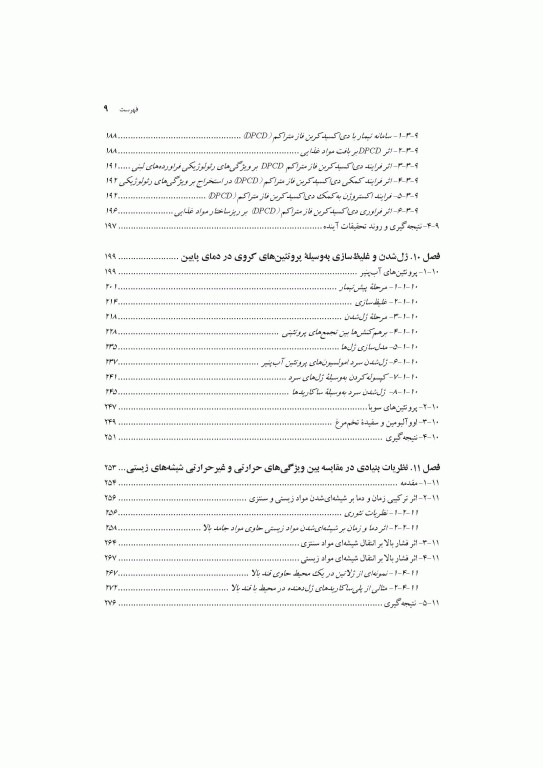 فهرست ۹
۹-۳-۱- سامانه تیمار با دی‌اکسیدکربن فاز متراکم (DPCD) ۱۸۸
۹-۳-۲- اثر DPCD بر بافت مواد غذایی ۱۸۸
۹-۳-۳- اثر فرایند دی‌اکسیدکربن فاز متراکم DPCD بر ویژگی‌های رئولوژیکی فراورده‌های لبنی ۱۹۱
۹-۳-۴- اثر فرایند کمکی دی‌اکسیدکربن فاز متراکم (DPCD) در استخراج بر ویژگی‌های رئولوژیکی ۱۹۲
۹-۳-۵- فرایند اکستروژن به‌کمک دی‌اکسیدکربن فاز متراکم (DPCD) ۱۹۲
۹-۳-۶- اثر فراوری دی‌اکسیدکربن فاز متراکم (DPCD) بر ریزساختار مواد غذایی ۱۹۶
۹-۴- نتیجه‌گیری و روند تحقیقات آینده ۱۹۷
فصل ۱۰. ژل‌شدن و غلیظ‌سازی به‌وسیلهٔ پروتئین‌های کروی در دمای پایین ۱۹۹
۱۰-۱- پروتئین‌های آب‌پنیر ۱۹۹
۱۰-۱-۱- مرحلهٔ پیش‌تیمار ۲۰۱
۱۰-۱-۲- غلیظ‌سازی ۲۱۴
۱۰-۱-۳- مرحلهٔ ژل‌شدن ۲۱۸
۱۰-۱-۴- برهم‌کنش‌ها بین تجمع‌های پروتئینی ۲۲۸
۱۰-۱-۵- مدل‌سازی ژل‌ها ۲۳۵
۱۰-۱-۶- ژل‌شدن سرد امولسیون‌های پروتئین آب‌پنیر ۲۳۷
۱۰-۱-۷- کپسوله‌کردن به‌وسیلهٔ ژل‌های سرد ۲۴۱
۱۰-۱-۸- ژل‌شدن سرد به‌وسیلهٔ ساکاریدها ۲۴۵
۱۰-۲- پروتئین‌های سویا ۲۴۷
۱۰-۳- اووآلبومین و سفیدهٔ تخم‌مرغ ۲۴۹
۱۰-۴- نتیجه‌گیری ۲۵۱
فصل ۱۱. نظریات بنیادی در مقایسه بین ویژگی‌های حرارتی و غیرحرارتی شیشه‌های زیستی ۲۵۳
۱۱-۱- مقدمه ۲۵۴
۱۱-۲- اثر ترکیبی زمان و دما بر شیشه‌ای‌شدن مواد زیستی و سنتزی ۲۵۶
۱۱-۲-۱- نظریات تئوری ۲۵۶
۱۱-۲-۲- اثر دما و زمان بر شیشه‌ای‌شدن مواد زیستی حاوی مواد جامد بالا ۲۵۸
۱۱-۳- اثر فشار بالا بر انتقال شیشه‌ای مواد سنتزی ۲۶۴
۱۱-۴- اثر فشار بالا بر انتقال شیشه‌ای مواد زیستی ۲۶۷
۱۱-۴-۱- نمونه‌ای از ژلاتین در یک محیط حاوی قند بالا ۲۶۷
۱۱-۴-۲- مثالی از پلی‌ساکاریدهای ژل‌دهنده در محیط با قند بالا ۲۷۲
۱۱-۵- نتیجه‌گیری ۲۷۶